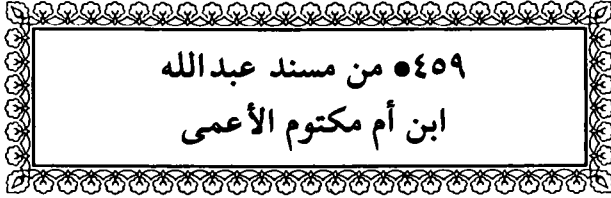 ٤٥٩● من مسند عبدالله
ابن أم مكتوم الأعمى